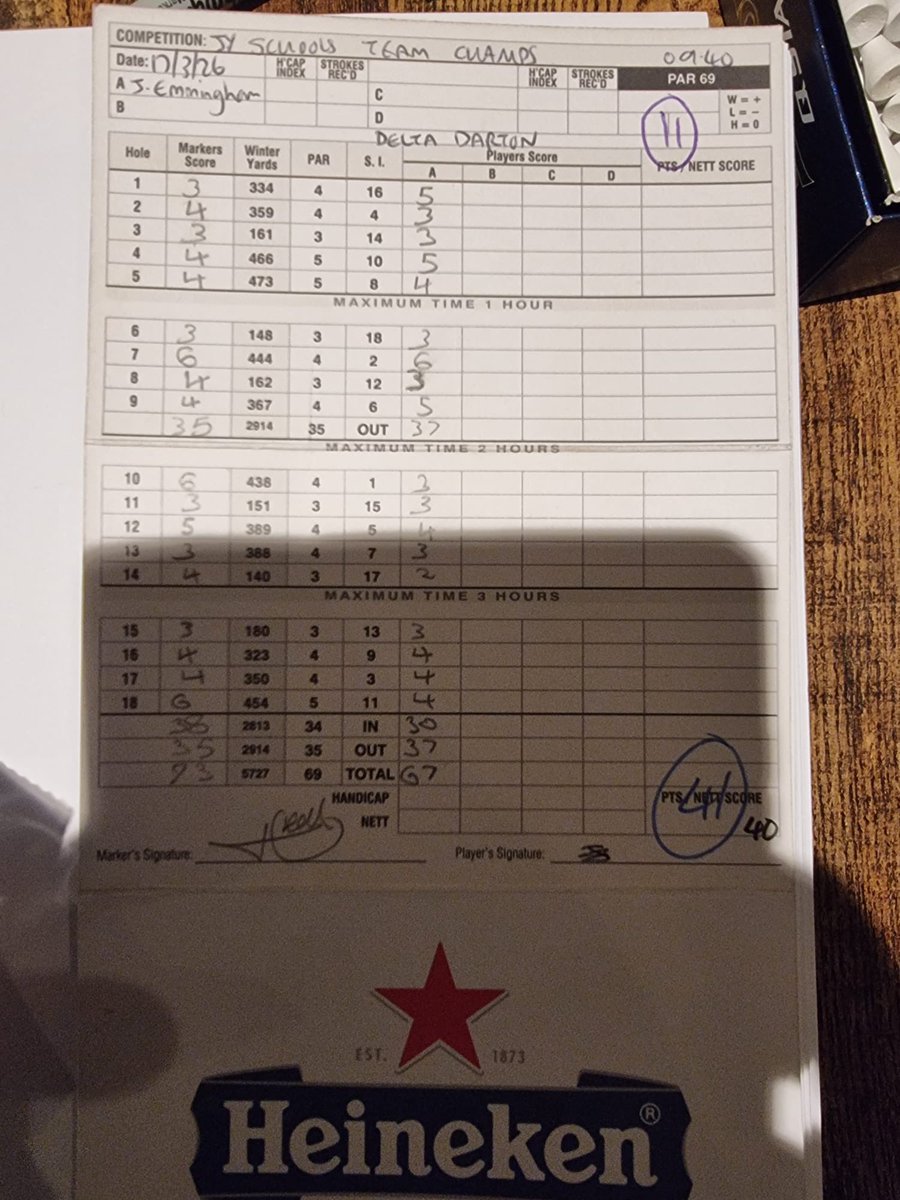 COMPETITION: SY SCHOOLS TEAM CHAMPS 09.40
Date: 17/3/26 H'CAP INDEX STROKES REC'D H'CAP INDEX STROKES REC'D PAR 69
A J. Emmingham C W = +
B D L = –
H = 0
DELTA DARTON 11
Hole Markers Score Winter Yards PAR S. I. Players Score PTS / NETT SCORE
A B C D
1 3 334 4 16 5
2 4 359 4 4 3
3 3 161 3 14 3
4 4 466 5 10 5
5 4 473 5 8 4
MAXIMUM TIME 1 HOUR
6 3 148 3 18 3
7 6 444 4 2 6
8 4 162 3 12 3
9 4 367 4 6 5
35 2914 35 OUT 37
MAXIMUM TIME 2 HOURS
10 6 438 4 1 3
11 3 151 3 15 3
12 5 389 4 5 4
13 3 388 4 7 3
14 4 140 3 17 2
MAXIMUM TIME 3 HOURS
15 3 180 3 13 3
16 4 323 4 9 4
17 4 350 4 3 4
18 6 454 5 11 4
38 2813 34 IN 30
35 2914 35 OUT 37
73 5727 69 TOTAL 67
HANDICAP PTS / NETT SCORE
NETT 41 40
Marker's Signature: Player's Signature:
EST. 1873
Heineken®